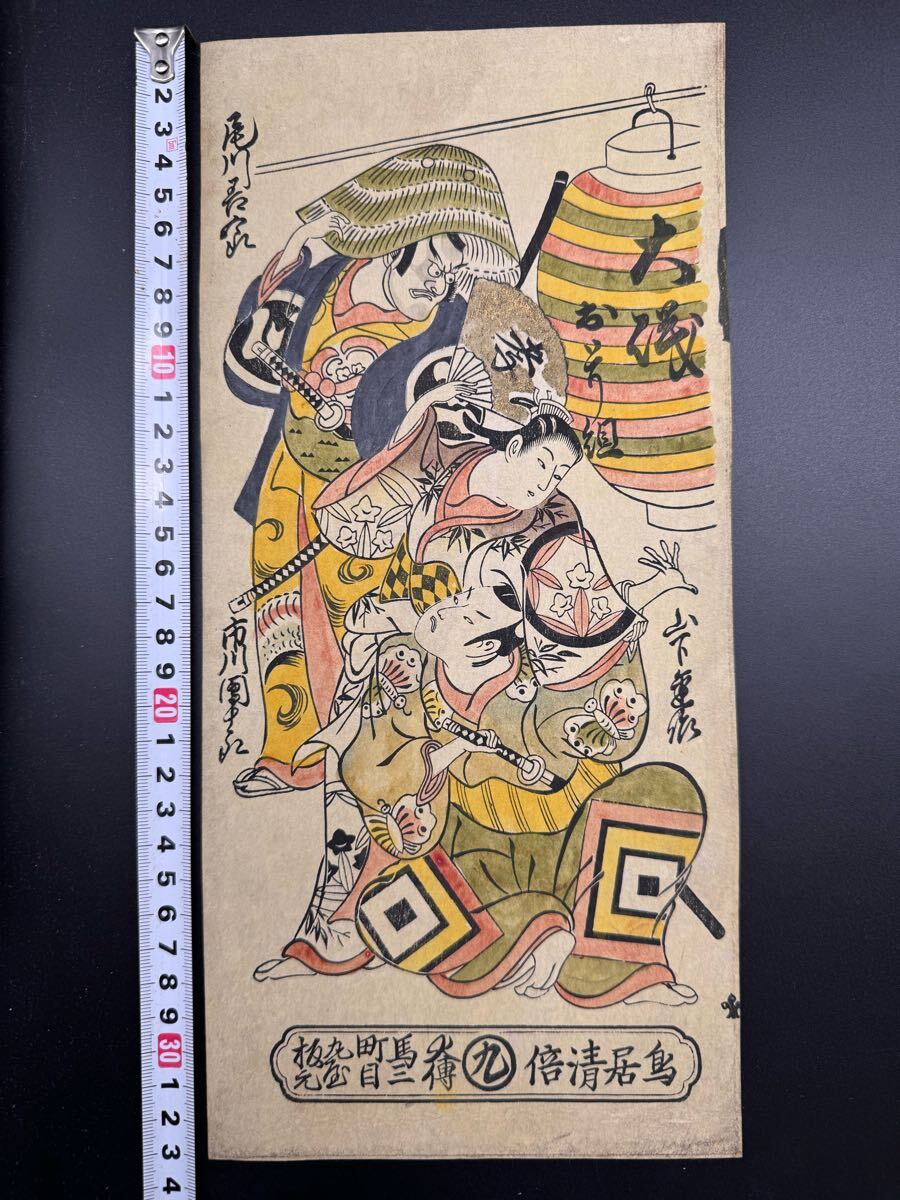 大磯
おどり組
山下
市川團十郎
鳥居清倍
九
大傳
馬三
町目
丸屋
板元
2 3 4 5 6 7 8 9 10 1 2 3 4 5 6 7 8 9 20 1 2 3 4 5 6 7 8 9 30 1 2 3 4